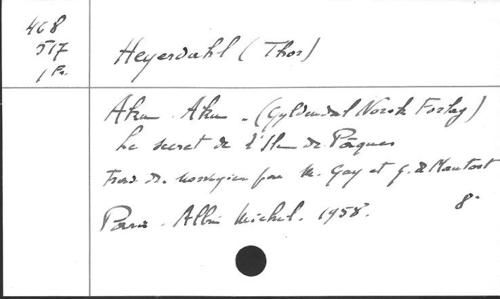 468
517
1 Pr.
Heyerdahl (Thor)
Aku Aku - (Gyldendal Norsk Forlag)
Le secret de l'Ile de Pâques
Trad. du norvégien par M. Gay et G. de Mautort
Paris. Albin Michel. 1958. 8°